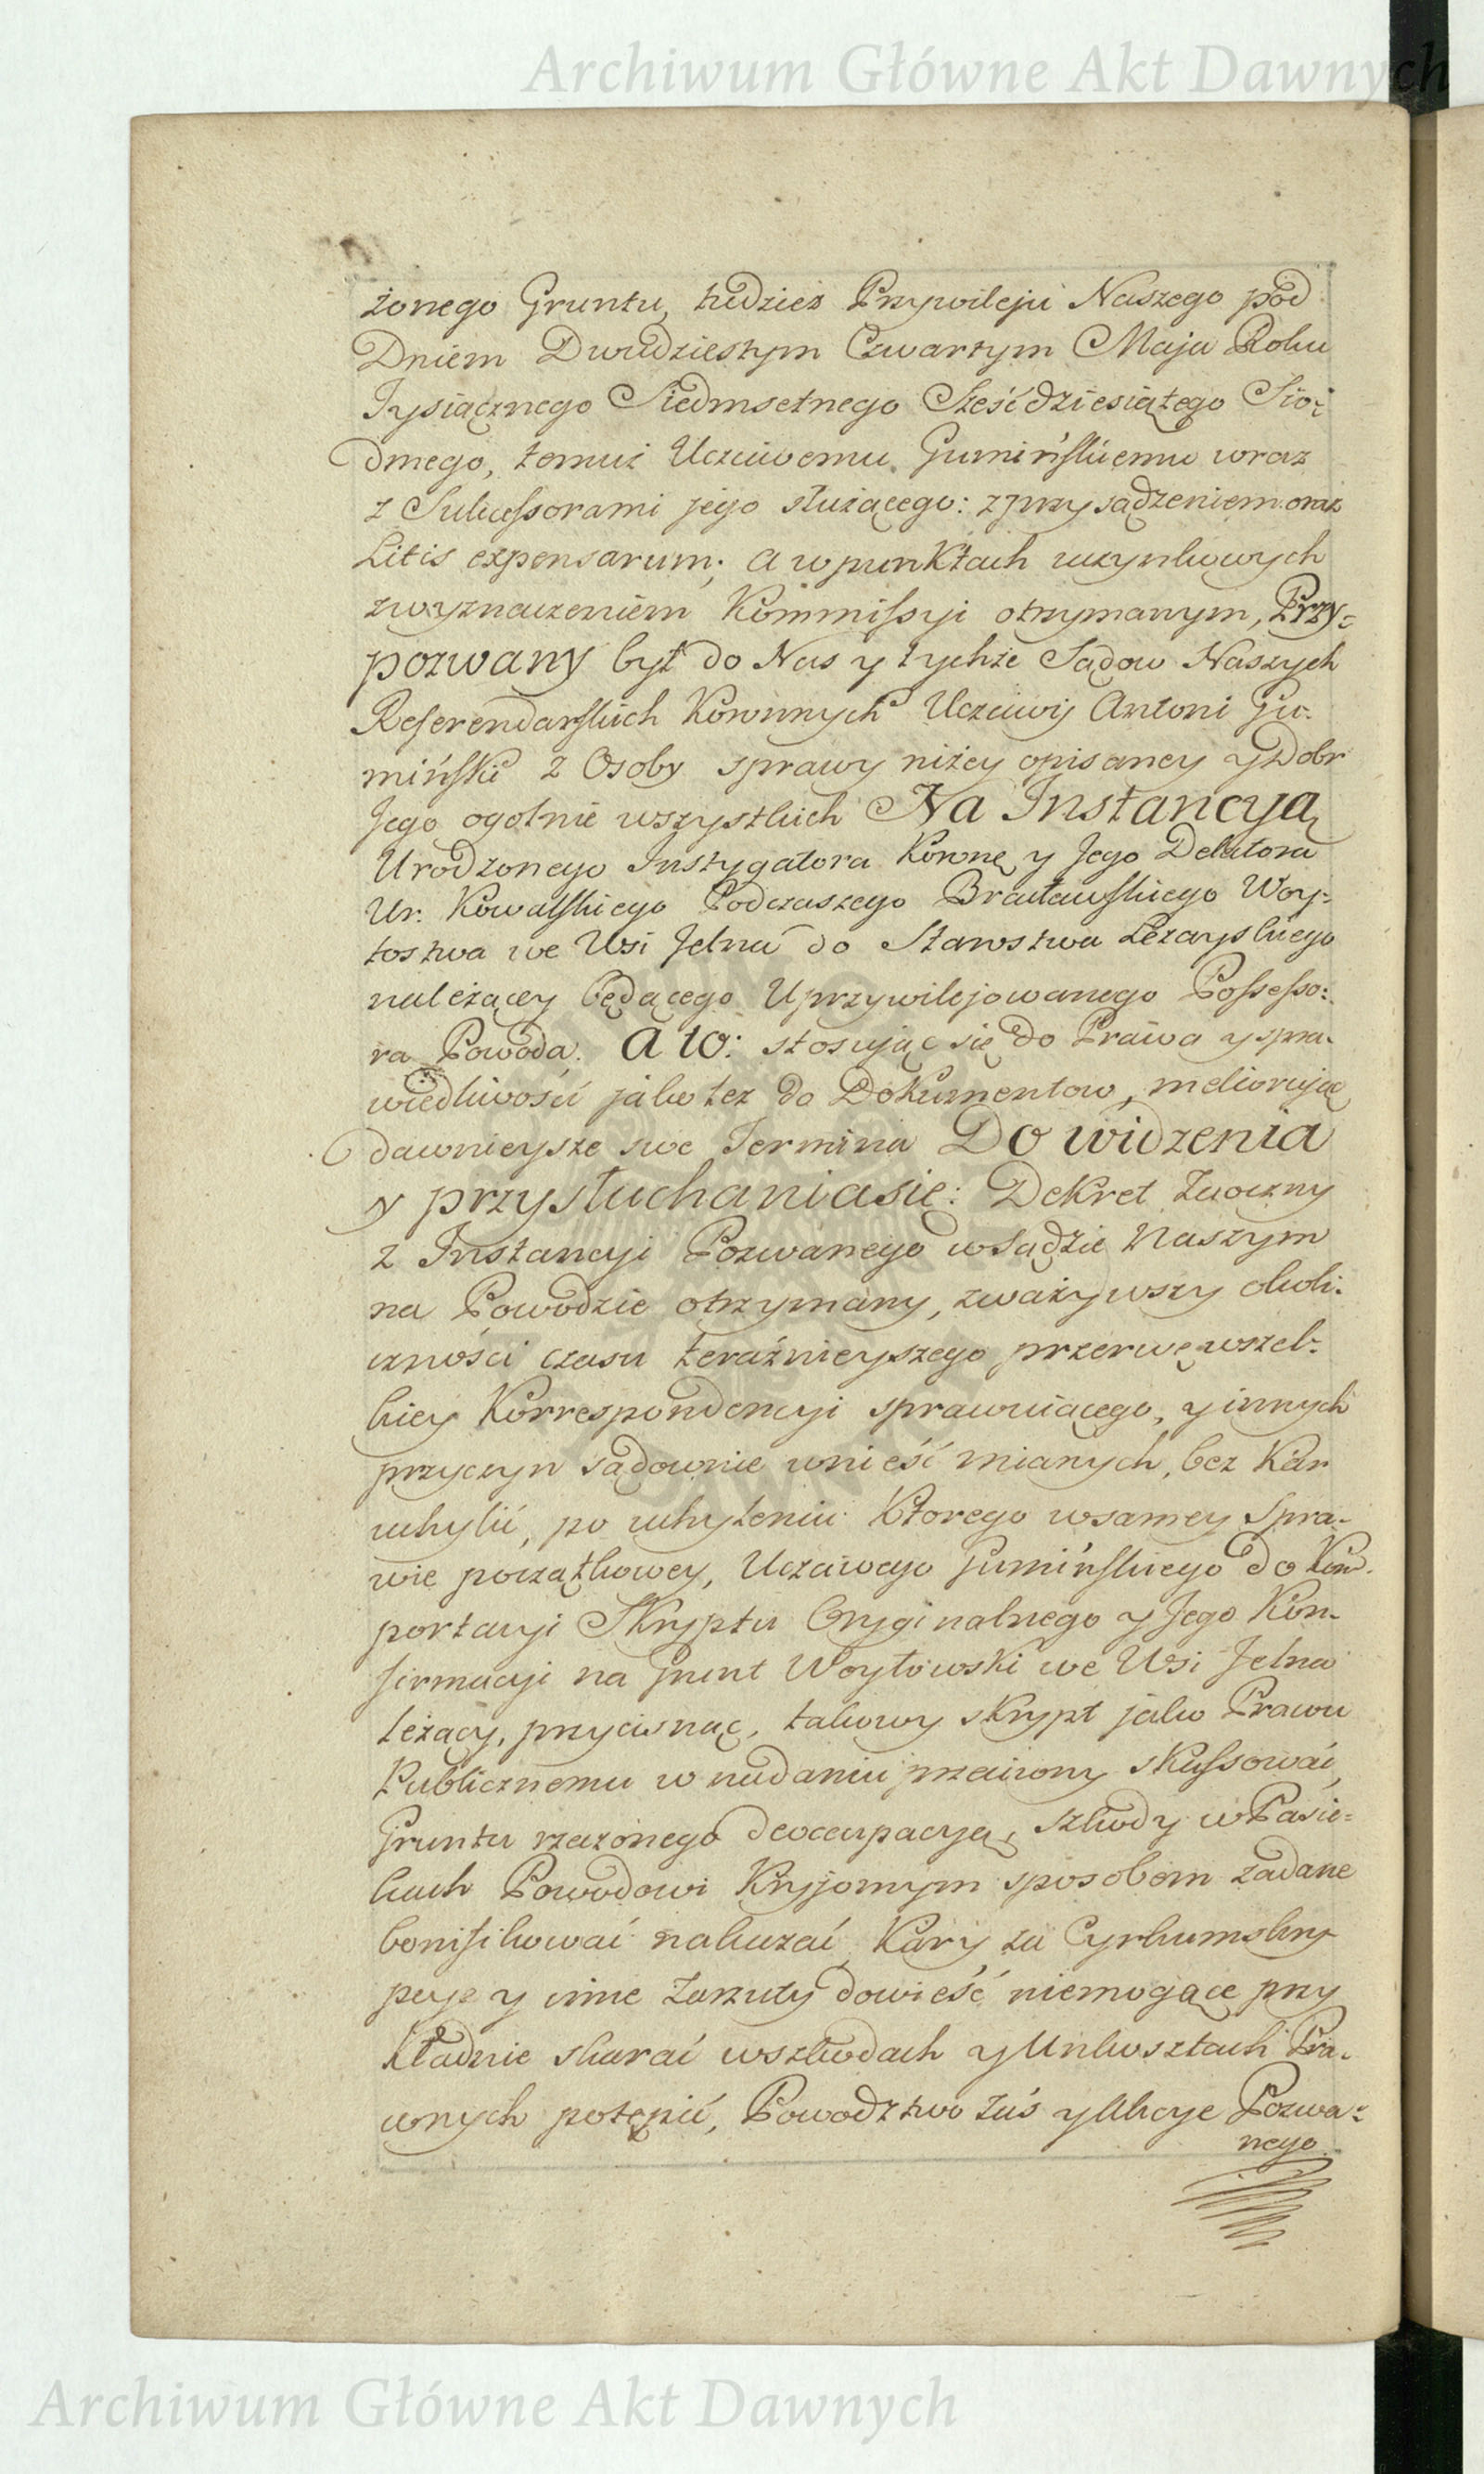 Archiwum Główne Akt Dawnych
żonego Gruntu, tudzież Przywileju Naszego pod
Dniem Dwudziestym Czwartym Maja Roku
Tysiącznego Siedmsetnego Sześćdziesiątego Sio-
dmego, temuż Uczciwemu Gumińskiemu wraz
z Sukcessorami jego służącego: z przysądzeniem oraz
Litis expensarum; a w punktach uczynkowych
z wyznaczeniem Kommissyi otrzymanym, Przy-
pozwany był do Nas y tychże Sądow Naszych
Referendarskich Koronnych Uczciwy Antoni Gu-
miński z Osoby sprawy niżey opisaney y Dobr
Jego ogolnie wszystkich Na Instancyą
Urodzonego Instygatora Koronne y Jego Delatora
Ur: Kowalskiego Podczaszego Bracławskiego Woy-
tostwa we Wsi Jelna do Starostwa Leżayskiego
należącey będącego Uprzywilejowanego Possesso-
ra Powoda. A to: stosując się do Prawa y spra-
wiedliwości jako też do Dokumentow, meliorując
dawnieysze swe Termina Do widzenia
y przysłuchania się: Dekret Zaoczny
z Instancyi Pozwanego w Sądzie Naszym
na Powodzie otrzymany, zważywszy okoli-
czności czasu teraźnieyszego przerwę wszel-
kiey Korrespondencyi sprawuiącego, y innych
przyczyn sądownie wnieść mianych, bez Kar
uchylić, po uchyleniu Ktorego w samey Spra-
wie początkowey, Uczciwego Gumińskiego do Kom-
portacyi Skryptu Oryginalnego y Jego Kon-
firmacyi na Grunt Woytowski we Wsi Jelna
leżący, przycisnąć, takowy skrypt jako Prawu
Publicznemu w nadaniu przeciwny skassować,
Gruntu rzeczonego deoccupacyą, szkody w Pasie-
kach Powodowi Kryjomym sposobem zadane
bonifikować nakazać, Kary za Cyrkumskry
pcye y inne Zarzuty dowieść niemogące przy
kładnie skarać w szkodach y Unkosztach Pra-
wnych potępić, Powodztwo zaś y Akcye Pozwa-
nego
Archiwum Główne Akt Dawnych